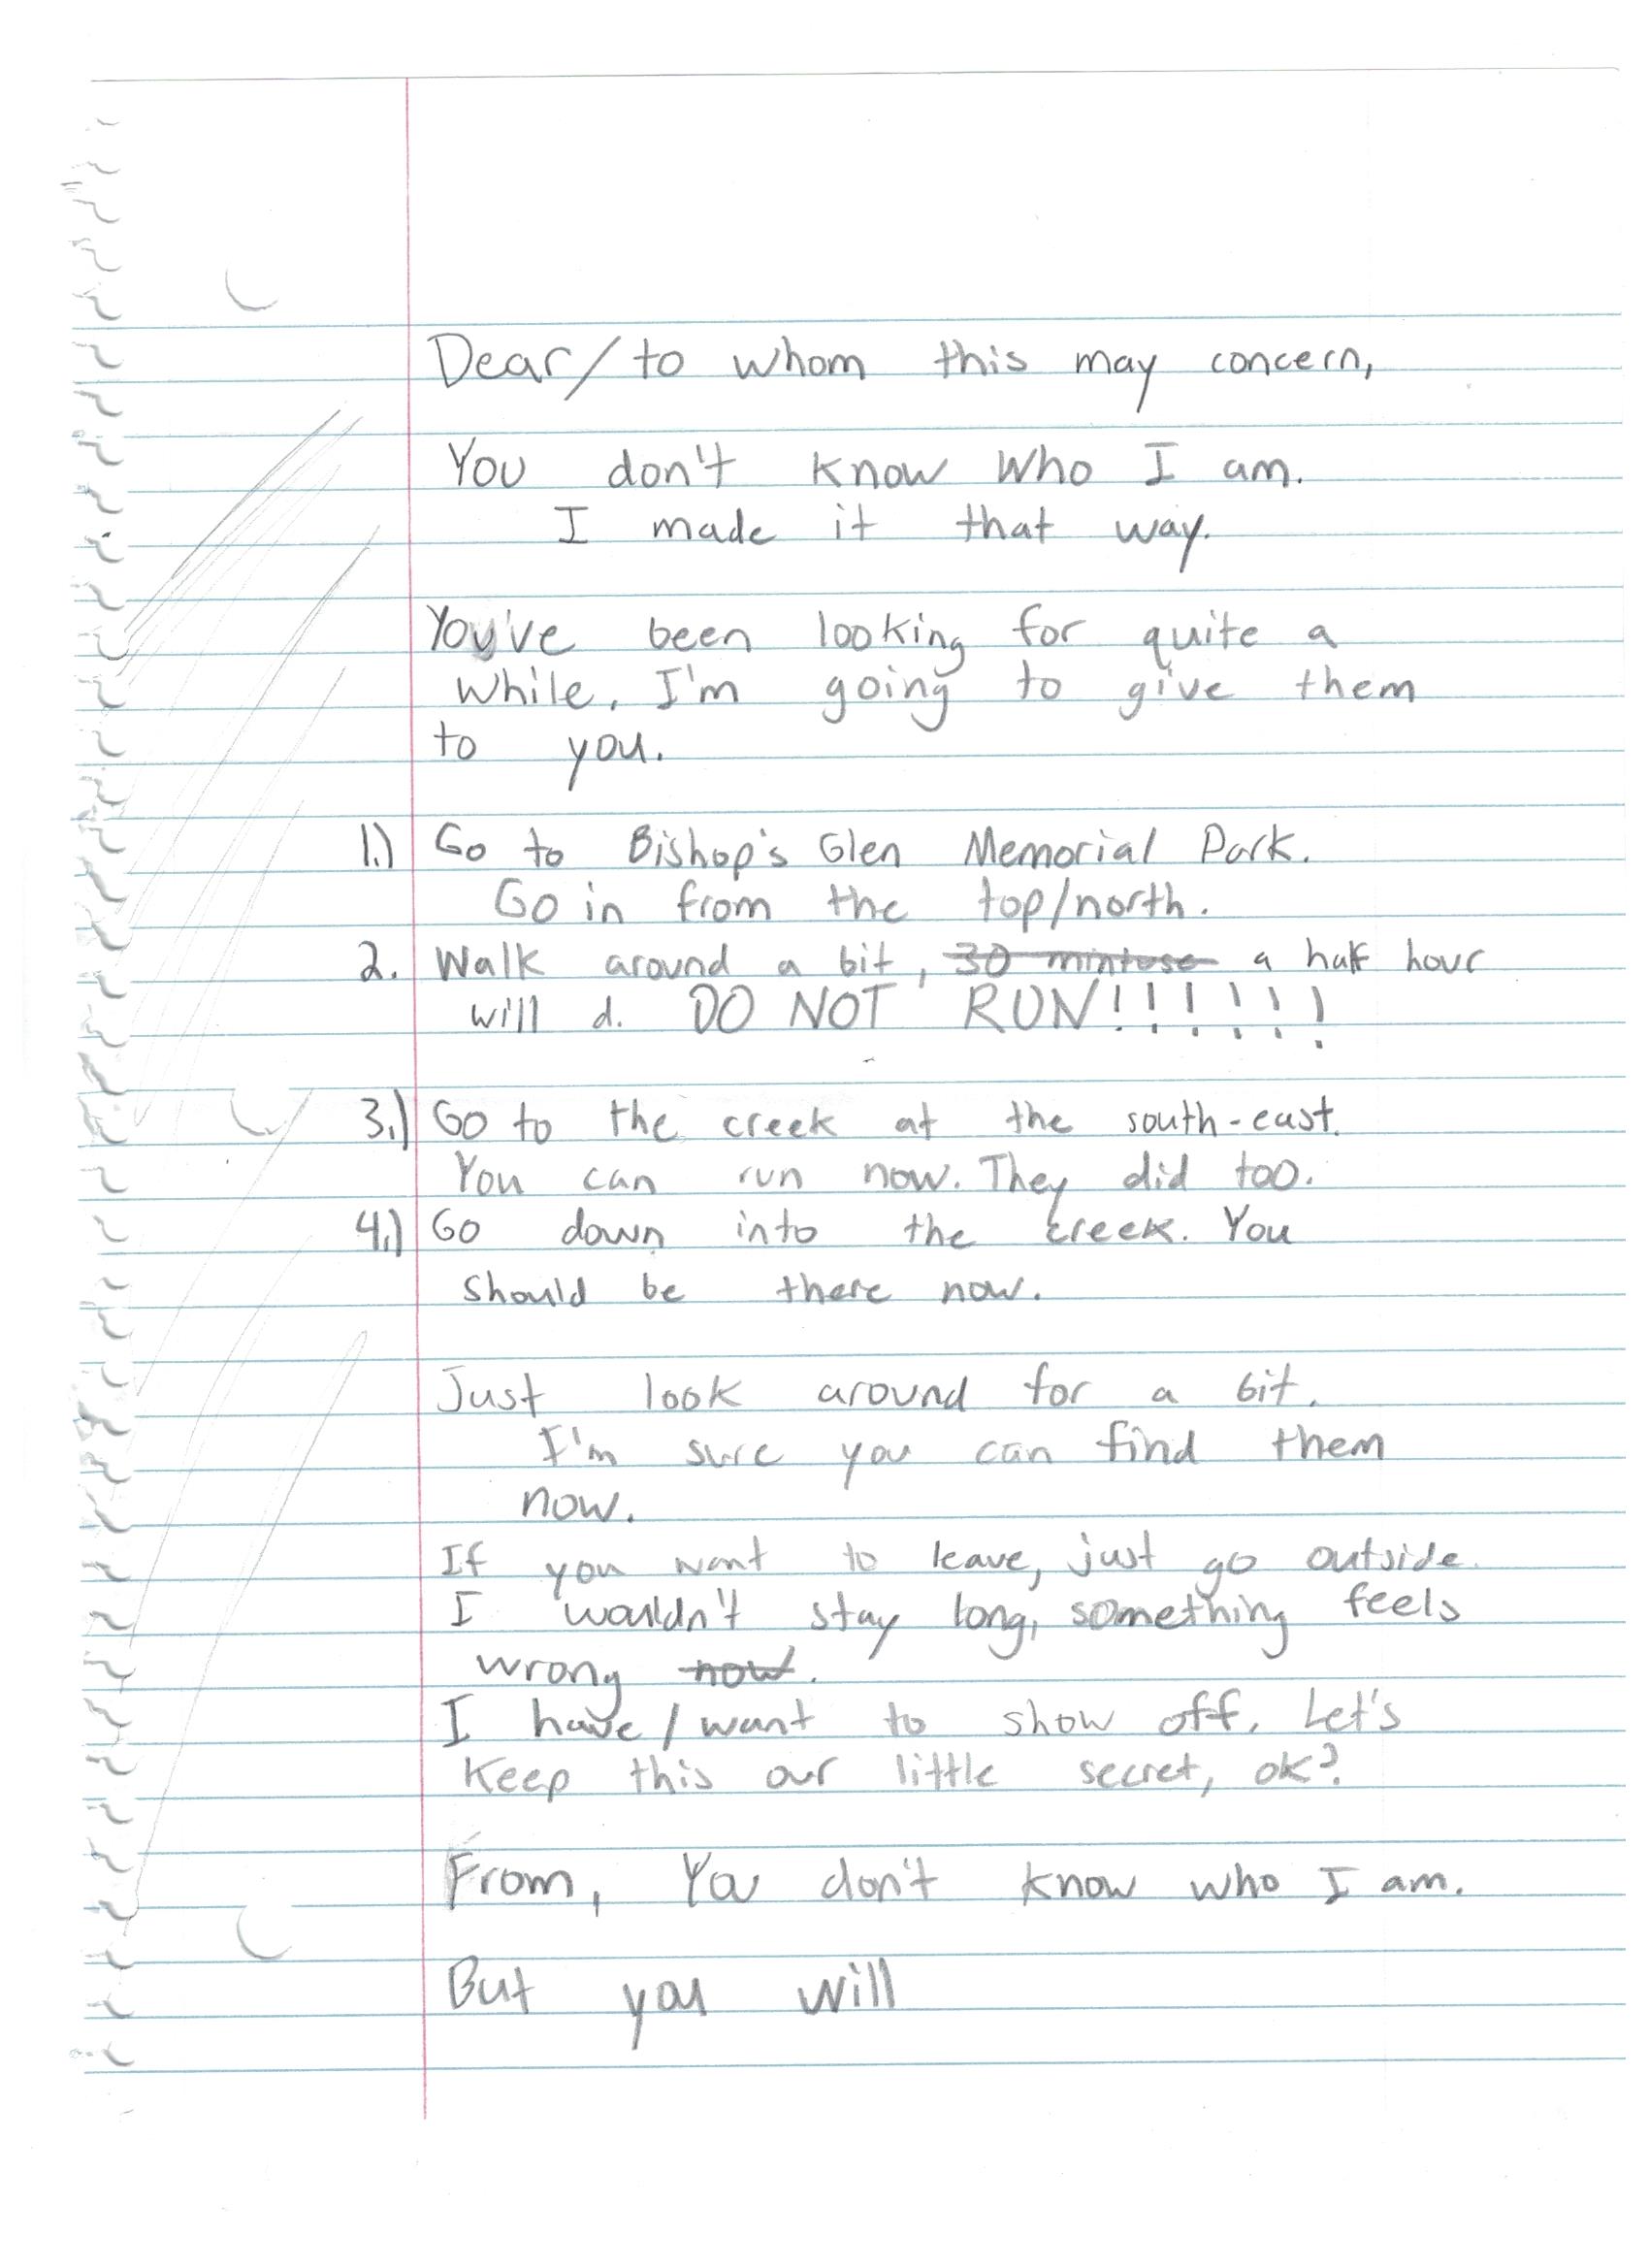 Dear/to whom this may concern,
You don't know who I am.
I made it that way.
You've been looking for quite a
while, I'm going to give them
to you.
1.) Go to Bishop's Glen Memorial Park.
Go in from the top/north.
2. Walk around a bit, 30 mintuse a half hour
will d. DO NOT RUN!!!!!!
3.) Go to the creek at the south-east.
You can run now. They did too.
4.) Go down into the creek. You
should be there now.
Just look around for a bit.
I'm sure you can find them
now.
If you want to leave, just go outside.
I wouldn't stay long, something feels
wrong now.
I have/want to show off. Let's
keep this our little secret, ok?
From, You don't know who I am.
But you will